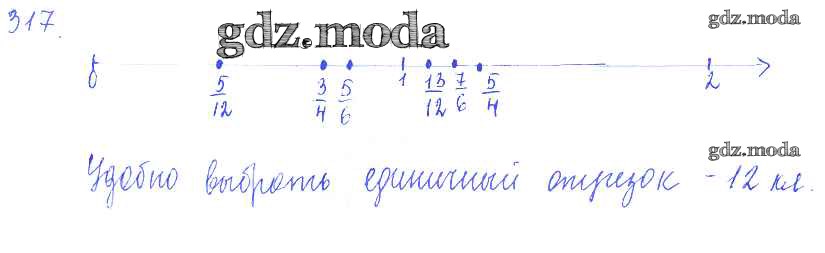 317.
gdz.moda
gdz.moda
0 5/12 3/4 5/6 1 13/12 7/6 5/4 2
gdz.moda
Удобно выбрать единичный отрезок - 12 кл.